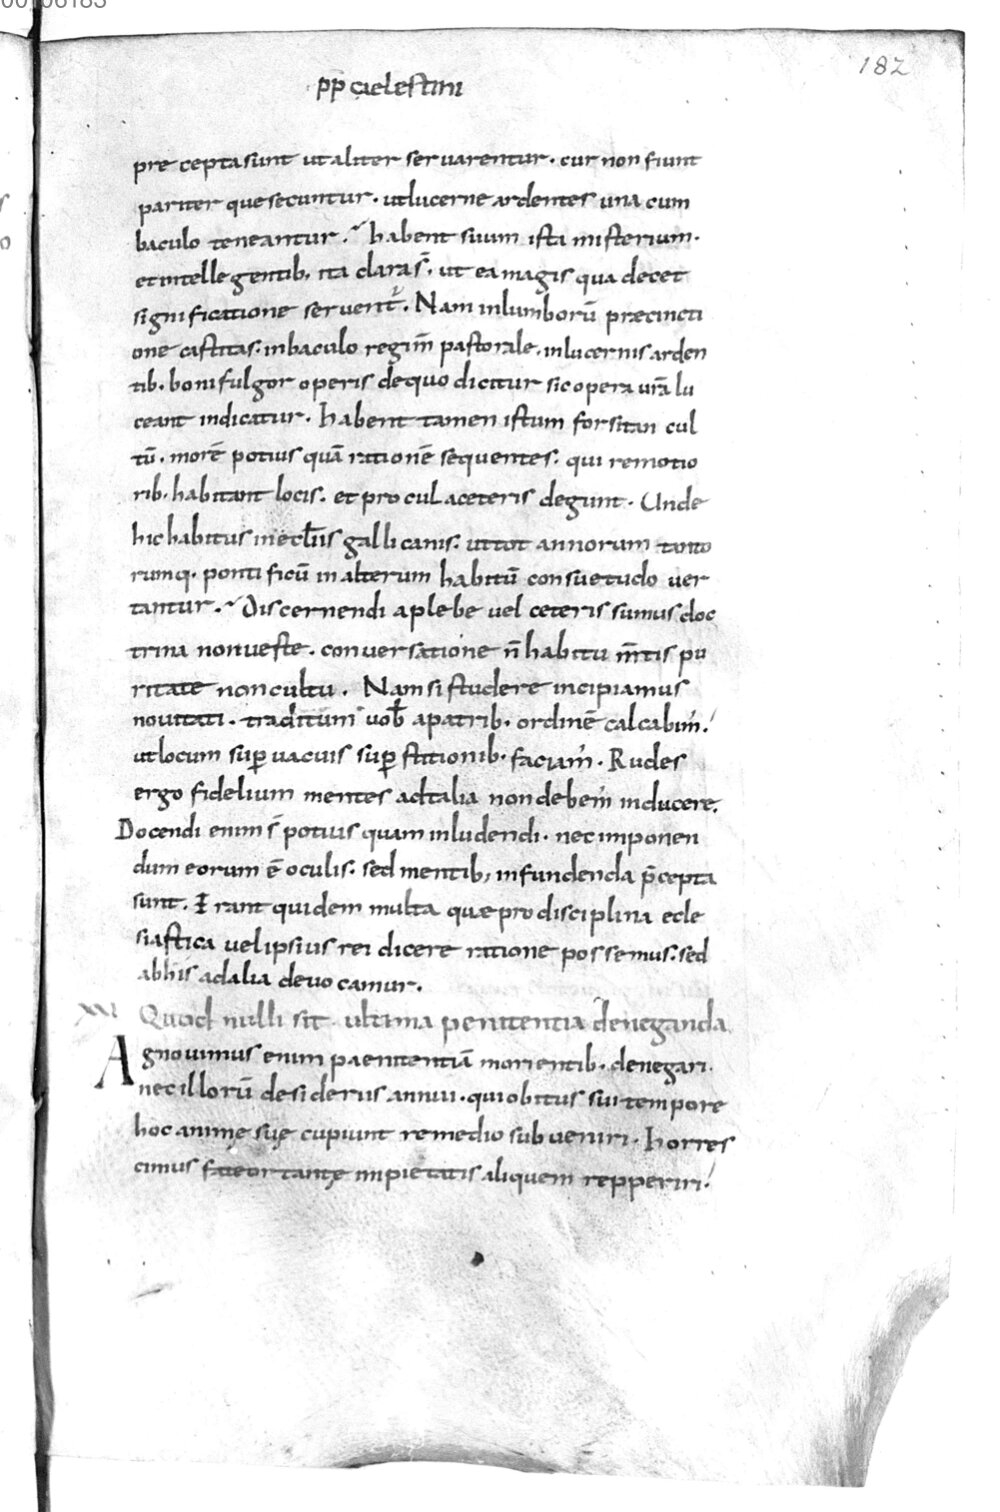 00106183
182
pp̄ cęlestini
pre cepta sunt ut aliter servarentur. cur non fiunt
pariter que secuntur. ut lucerne ardentes una cum
baculo teneantur. habent suum ista misterium.
et intellegentib. ita clara s̄. ut ea magis qua decet
significatione servent᷑. Nam in lumborū præcincti
one castitas. in baculo regim̄ pastorale. in lucernis arden
tib. boni fulgor operis de quo dicitur sic opera urā lu
ceant indicatur. habent tamen istum forsitan cul
tū. morē potius quā rationē sequentes. qui remotio
rib. habitant locis. et procul a ceteris degunt. Unde
hic habitus in ecl̄iis gallicanis. ut tot annorum tanto
rumq. pontificū in alterum habitū consuetudo ver
tantur. Discernendi a plebe vel ceteris sumus doc
trina non veste. conversatione n̄ habitu m̄tis pu
ritate non cultu. Nam si studere incipiamus
novitati. traditum uob̄ a patrib. ordinē calcabim̕.
ut locum sup̱ vacuis sup̱stitionib. faciam̕. Rudes
ergo fidelium mentes ad talia non debem̕ inducere.
Docendi enim s̄ potius quam inludendi. nec imponen
dum eorum ē oculis. sed mentib; infundenda p̄cepta
sunt. Erant quidem multa quæ pro disciplina ecle
siastica vel ipsius rei dicere ratione possemus. sed
ab his ad alia devocamur.
XXI Quod nulli sit ultima penitentia deneganda
Agnovimus enim paenitentiā morientib. denegari.
nec illorū desideriis annui. qui obitus sui tempore
hoc anime suę cupiunt remedio subveniri. horres
cimus fateor tantę impietatis aliquem repperiri.